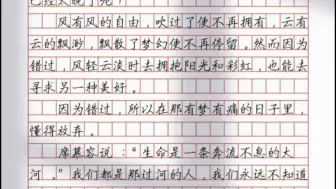 风有风的自由，吹过了便不再拥有，云有
云的飘渺，飘散了梦幻便不再停留。然而因为
错过，风轻云淡时去拥抱阳光和彩虹，也能去
寻求另一种美好。
因为错过，所以在那有梦有痛的日子里，
懂得放弃。
席慕容说：“生命是一条奔流不息的大
河。”我们都是那过河的人，我们永远不知道